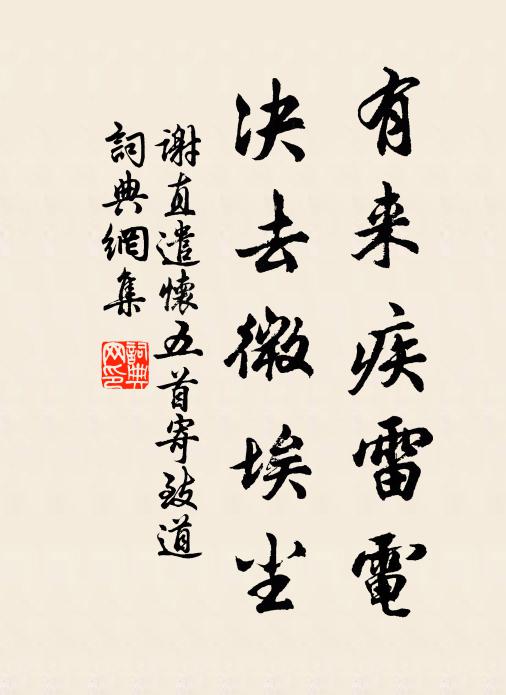 有来疾雷電
决去微埃尘
谢直遣懷五首寄致道
詞典網集
詞典网印